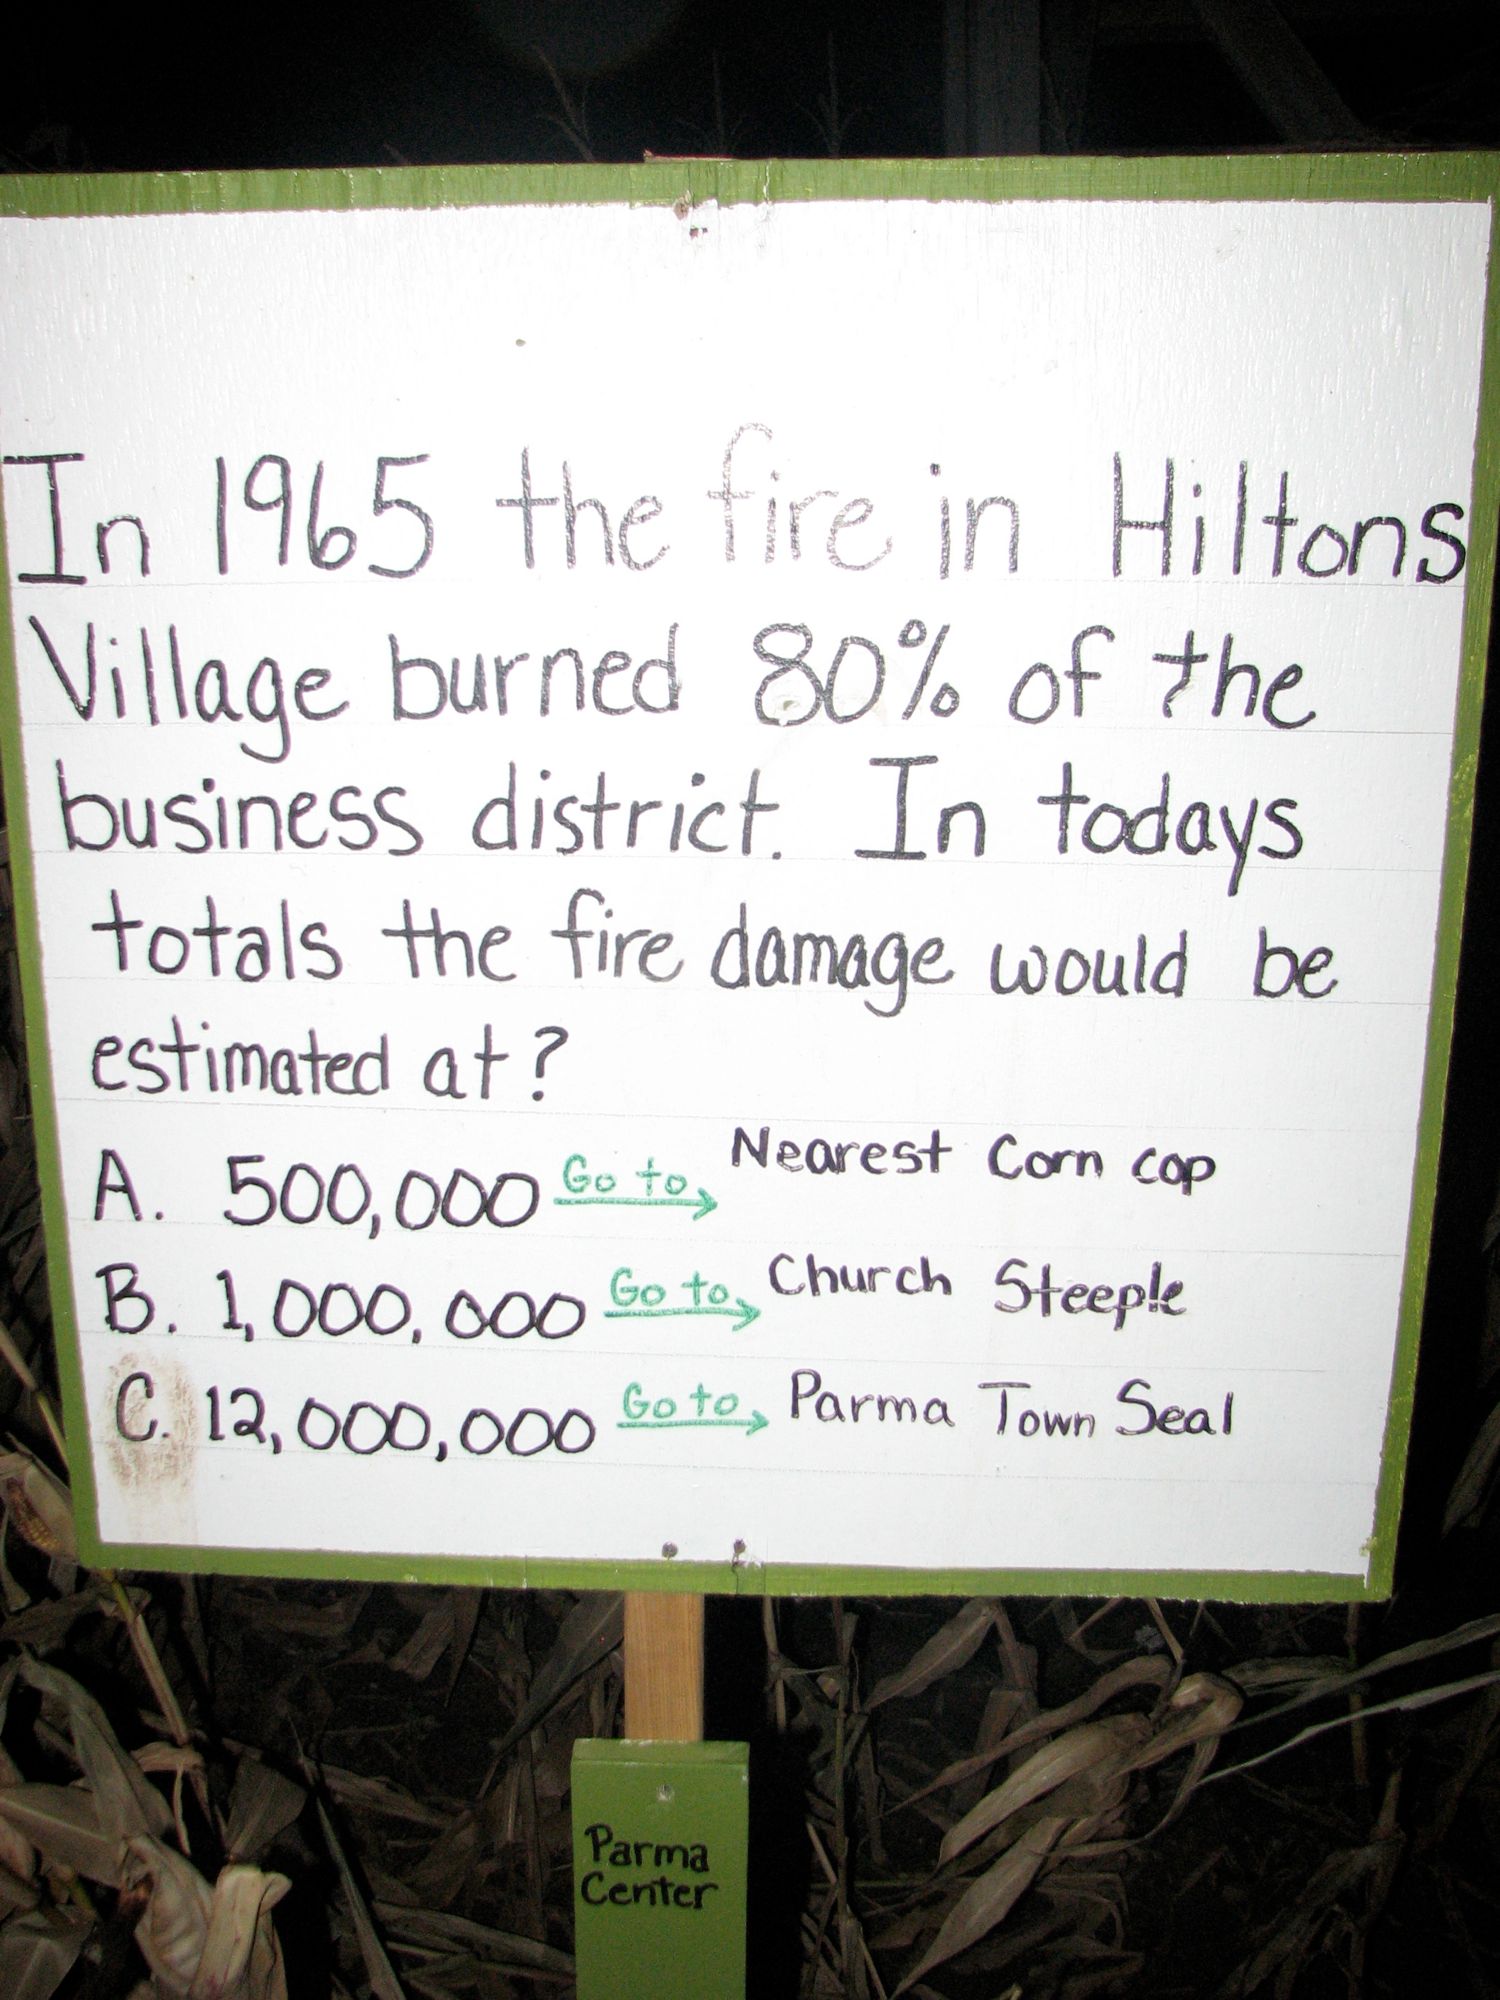 In 1965 the fire in Hiltons
Village burned 80% of the
business district. In todays
totals the fire damage would be
estimated at?
A. 500,000 Go to Nearest Corn cop
B. 1,000,000 Go to Church Steeple
C. 12,000,000 Go to Parma Town Seal
Parma
Center